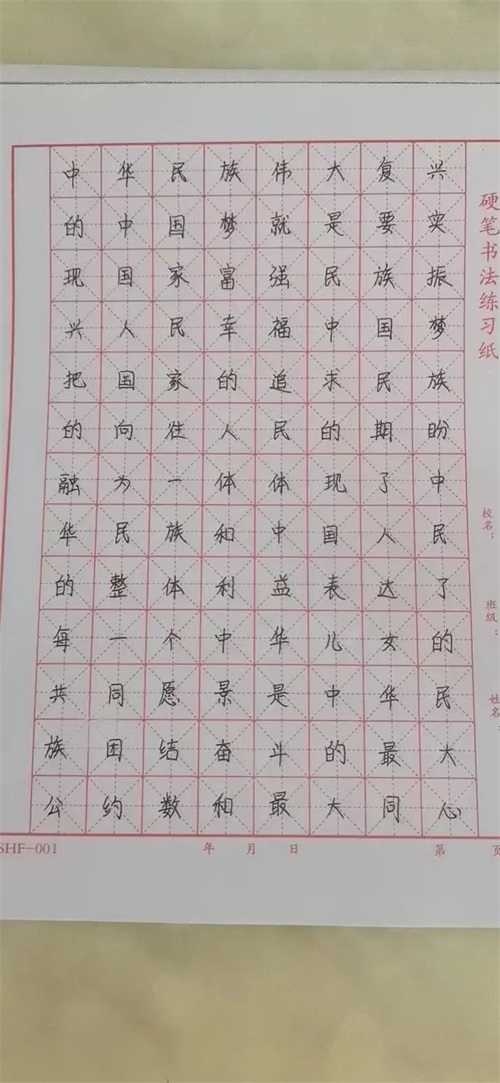 中华民族伟大复兴
的中国梦就是要实
现国家富强民族振
兴人民幸福中国梦
把国家的追求民族
的向往人民的期盼
融为一体体现了中
华民族和中国人民
的整体利益表达了
每一个中华儿女的
共同愿景是中华民
族团结奋斗的最大
公约数和最大同心
硬笔书法练习纸
校名：
班级：
姓名
SHF-001 年 月 日 第 页